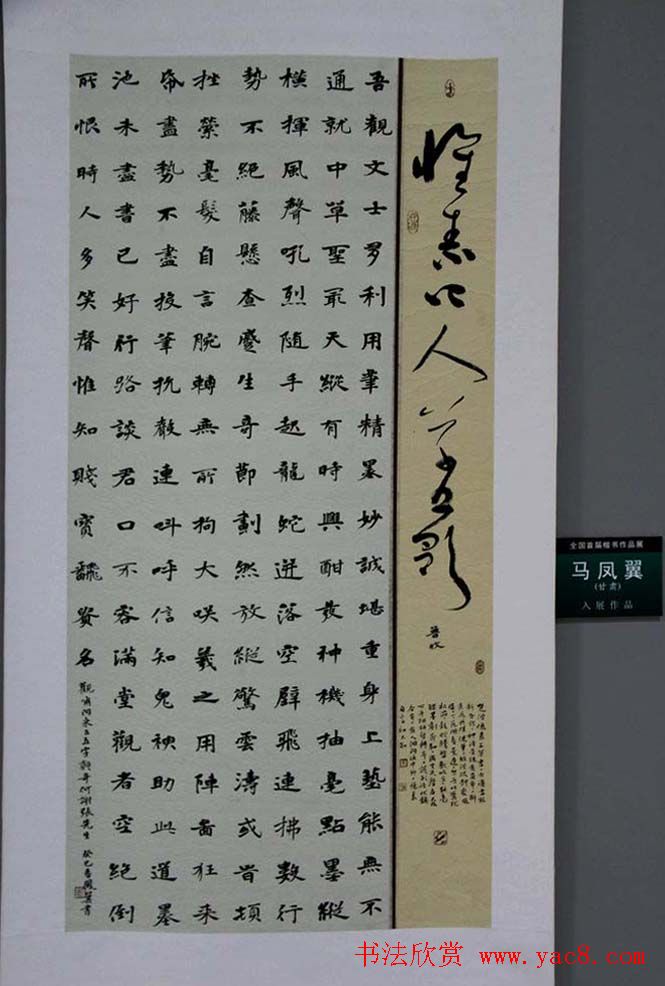 懷素上人草書歌
魯收
吾觀文士多利用筆精墨妙誠堪重身上藝能無不
通就中草聖最天縱有時興酣發神機抽毫點墨縱
橫揮風聲吼烈隨手起龍蛇迸落空壁飛連拂數行
勢不絕藤懸查蹙生奇節劃然放縱驚雲濤或旹頓
挫縈毫髮自言腕轉無所拘大咲羲之用陣啚狂来
帋盡勢不盡投筆抗聲連叫呼信知鬼神助此道墨
池未盡書已好行路談君口不容滿堂觀者空絕倒
所恨時人多笑聲惟知賤實翻貴名
觀爾向來三五字顛奇何謝張先生 癸巳春鳳翼書
全国首届楷书作品展
马凤翼
(甘肃)
入展作品
书法欣赏 www.yac8.com